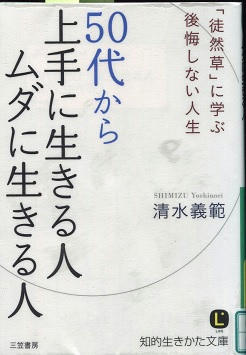 「徒然草」に学ぶ
後悔しない人生
50代から
上手に生きる人
ムダに生きる人
SHIMIZU Yoshinori
清水義範
三笠書房
L
LIFE
知的生きかた文庫